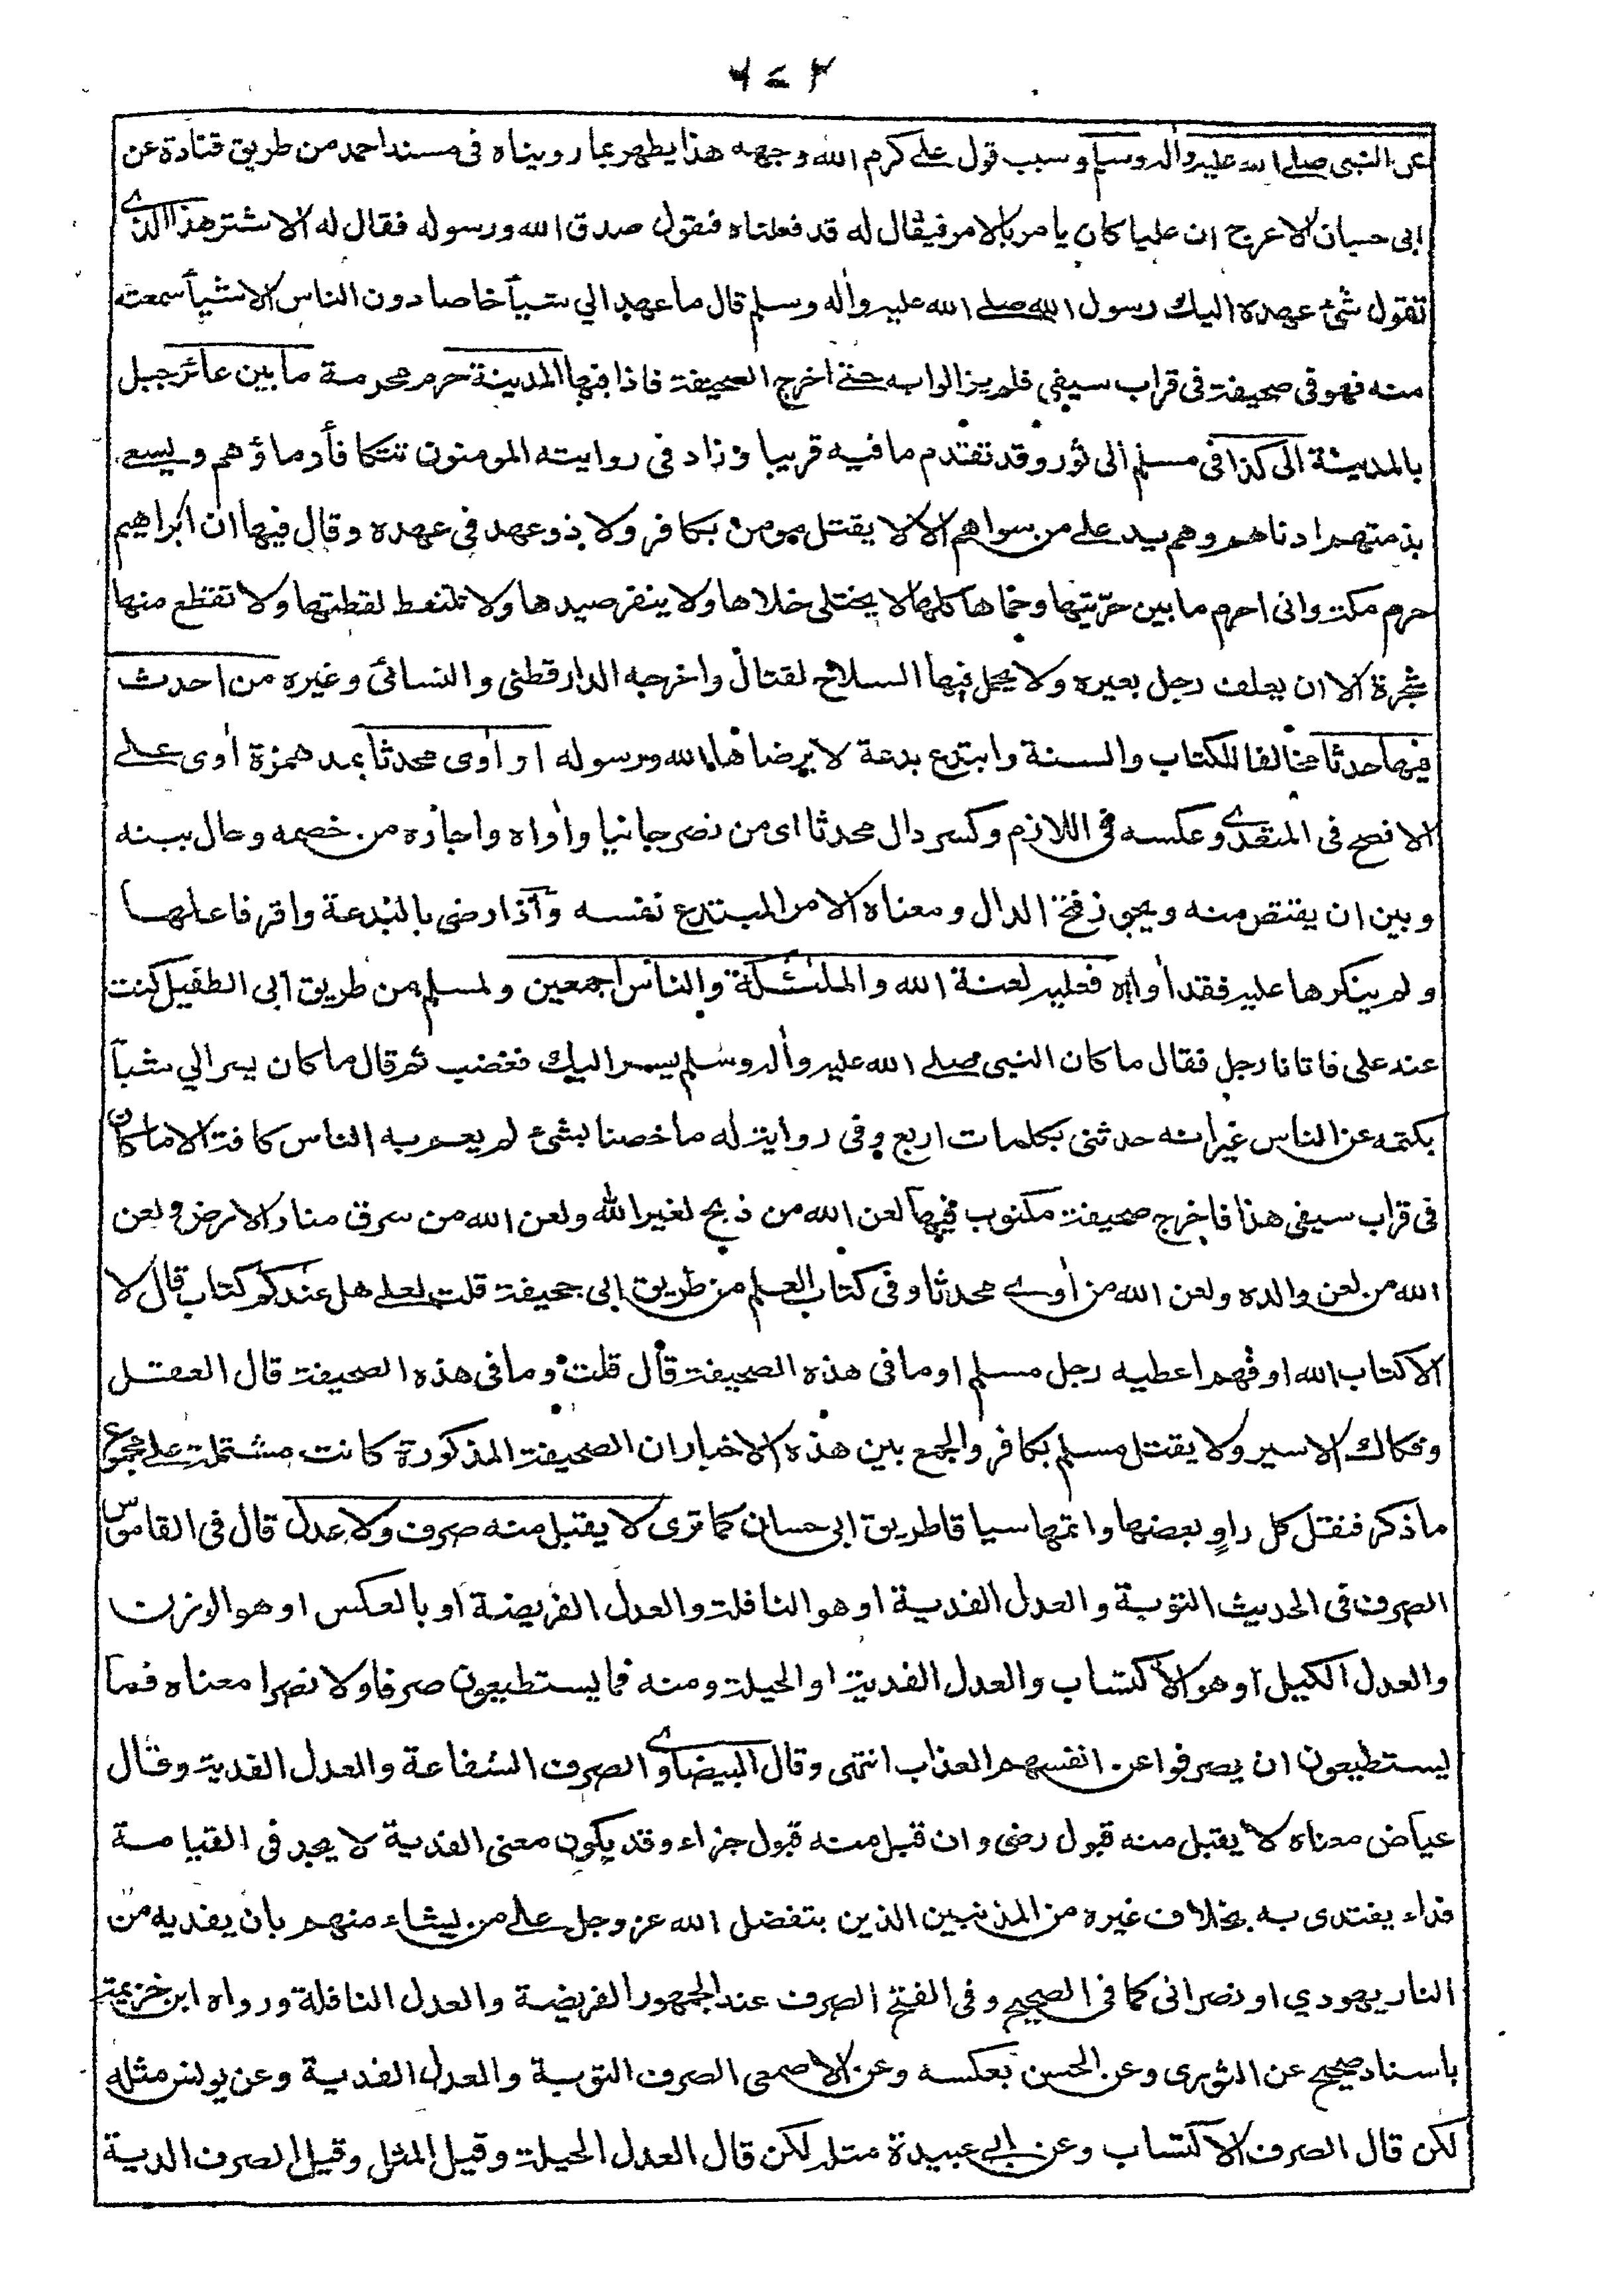 ٦٧٢
عن النبى صلے الله عليه واٰله وسلم وسبب قول علے كرم الله وجهه هذا يظهر بما رويناه فى مسند احمد من طريق قتادة عن
ابى حسان الاعرج ان عليا كان يامر بالامر فيقال له قد فعلناه فنقول صدق الله ورسوله فقال له الاشتر هذا الذے
تقول شئ عهدة اليك رسول الله صلے الله عليه واٰله وسلم قال ما عهد الي شيأ خاصا دون الناس الا شيأ سمعته
منه فهو فى صحيفة فى قراب سيفى فلم يزالوا به حتے اخرج الصحيفة فاذا فيها المدينة حرم محرمة ما بين عائر جبل
بالمدينة الى كذا فى مسلم الى ثور وقد تقدم ما فيه قريبا وزاد فى روايته المومنون تتكافأ دماؤهم ويسعى
بذمتهم ادناهم وهم يد علے من سواهم الا لا يقتل مومن بكافر ولا ذو عهد فى عهده وقال فيها ان ابراهيم
حرم مكة وانى احرم ما بين حرّتيها وحماها كلها لا يختلى خلاها ولا ينفر صيدها ولا تلتقط لقطتها ولا تقطع منها
شجرة الا ان يعلف رجل بعيره ولا يحمل فيها السلاح لقتال واخرجه الدارقطنى والنسائى وغيره من احدث
فيها حدثا مخالفا للكتاب والسنة وابتدع بدعة لا يرضاها الله ورسوله او اٰوى محدثا بمد همزة اٰوى علے
الافصح فى المتعدے وعكسه فى اللازم وكسر دال محدثا اى من نصر جانيا واٰواه واجاره من خصمه وحال بينه
وبين ان يقتص منه ويجوز فتح الدال ومعناه الامر المبتدع نفسه واذا رضى بالبدعة واقر فاعلها
ولم ينكرها عليه فقد اٰواه فعليه لعنة الله والملئكة والناس اجمعين ولمسلم من طريق ابى الطفيل كنت
عند على فاتانا رجل فقال ما كان النبى صلے الله عليه واٰله وسلم يسر اليك فغضب ثم قال ما كان يسر الي شيأ
يكتمه عن الناس غير انه حدثنى بكلمات اربع وفى رواية له ما خصنا بشئ لم يعم به الناس كافة الا ما كان
فى قراب سيفى هذا فاخرج صحيفة مكتوب فيها لعن الله من ذبح لغير الله ولعن الله من سرق منار الارض ولعن
الله من لعن والده ولعن الله من اٰوے محدثا وفى كتاب العلم من طريق ابى جحيفة قلت لعلے هل عندكم كتاب قال لا
الا كتاب الله او فهم اعطيه رجل مسلم او ما فى هذه الصحيفة قال قلت وما فى هذه الصحيفة قال العقل
وفكاك الاسير ولا يقتل مسلم بكافر والجمع بين هذه الاخبار ان الصحيفة المذكورة كانت مشتملة علے مجموع
ما ذكر فنقل كل راوٍ بعضها واتمها سياقا طريق ابى حسان كما ترى لا يقبل منه صرف ولا عدل قال فى القاموس
الصرف فى الحديث التوبة والعدل الفدية او هو النافلة والعدل الفريضة او بالعكس او هو الوزن
والعدل الكيل او هو الاكتساب والعدل الفدية او الحيلة ومنه فما يستطيعون صرفا ولا نصرا معناه فما
يستطيعون ان يصرفوا عن انفسهم العذاب انتهى وقال البيضاوے الصرف الشفاعة والعدل الفدية وقال
عياض معناه لا يقبل منه قبول رضى وان قبل منه قبول جزاء وقد يكون معنى الفدية لا يجد فى القيامة
فداء يفتدى به بخلاف غيره من المذنبين الذين يتفضل الله عز وجل علے من يشاء منهم بان يفديه من
النار يهودي او نصرانى كما فى الصحيح وفى الفتح الصرف عند الجمهور الفريضة والعدل النافلة ورواه ابن خزيمة
باسناد صحيح عن الثورى وعن الحسن بعكسه وعن الاصمعى الصرف التوبة والعدل الفدية وعن يونس مثله
لكن قال الصرف الاكتساب وعن ابى عبيدة مثله لكن قال العدل الحيلة وقيل المثل وقيل الصرف الدية